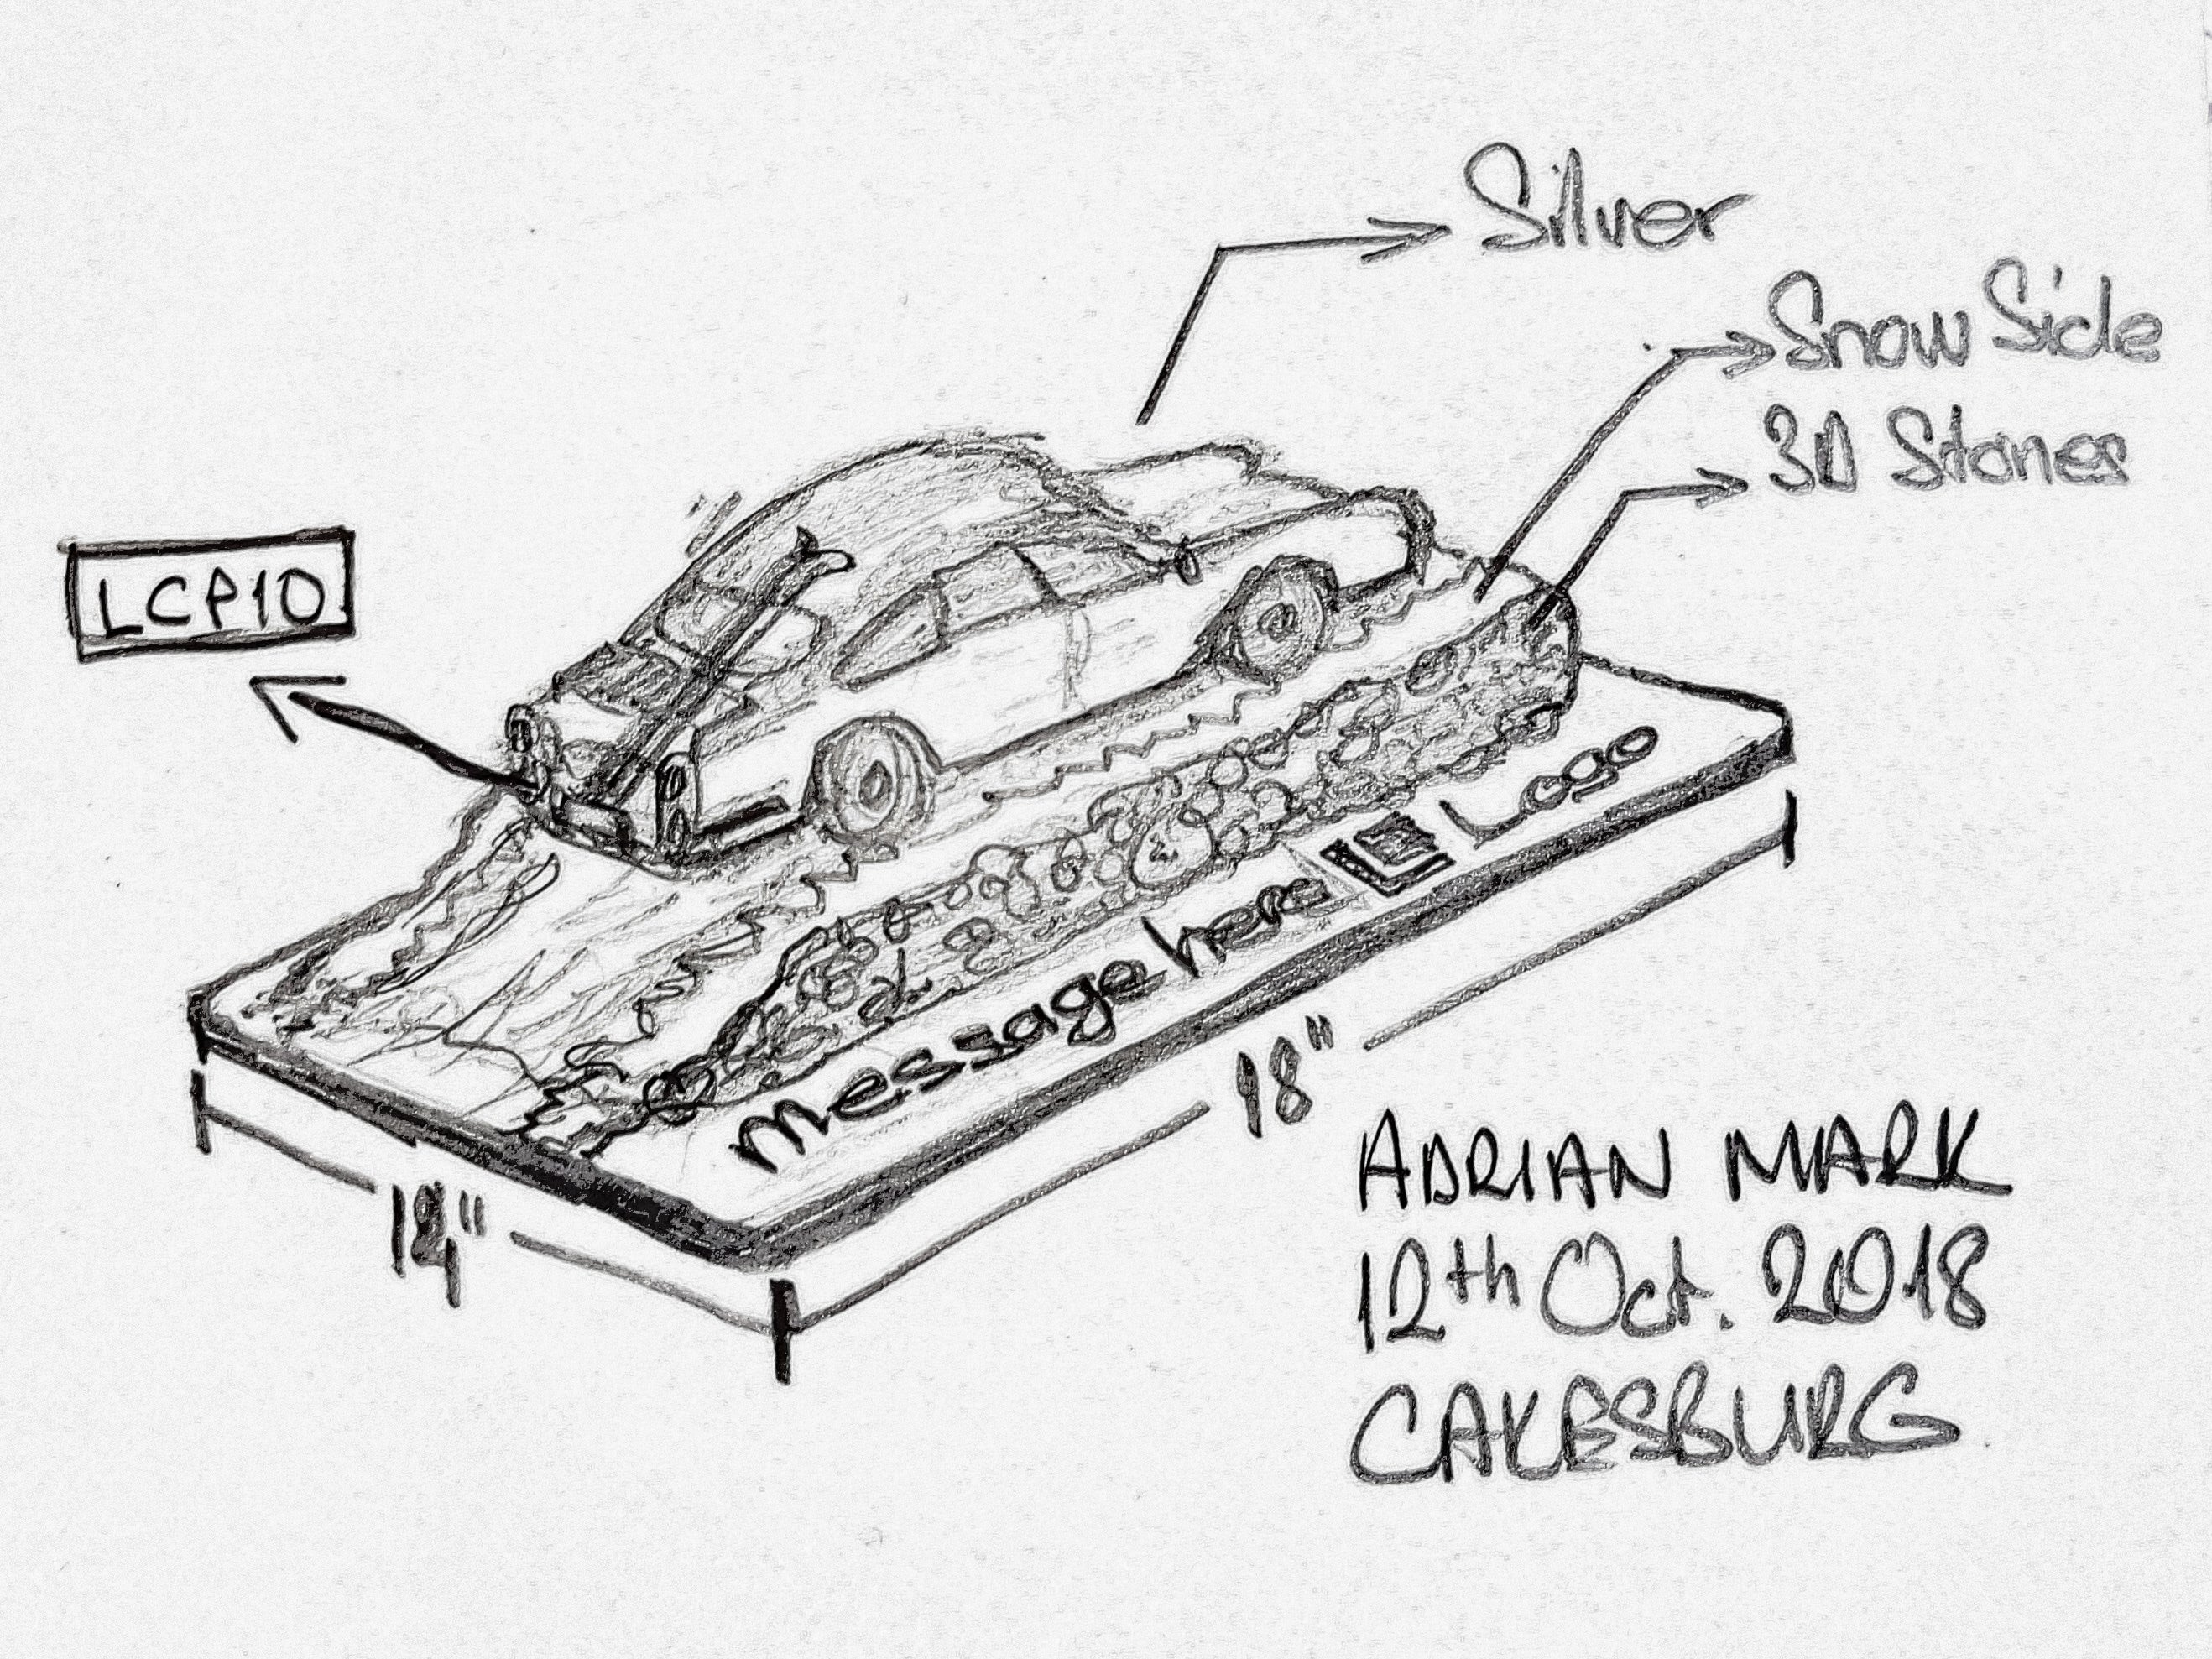 Silver
Snow Side
3D Stones
LCP10
Logo
message here
18"
14"
ADRIAN MARK
12th Oct. 2018
CAKESBURG